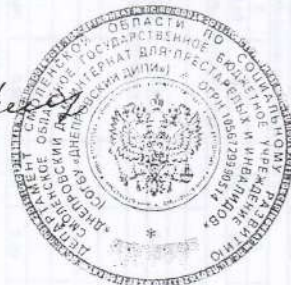 ДЕПАРТАМЕНТ СМОЛЕНСКОЙ ОБЛАСТИ ПО СОЦИАЛЬНОМУ РАЗВИТИЮ
СМОЛЕНСКОЕ ОБЛАСТНОЕ ГОСУДАРСТВЕННОЕ БЮДЖЕТНОЕ УЧРЕЖДЕНИЕ
«ДНЕПРОВСКИЙ ДОМ-ИНТЕРНАТ ДЛЯ ПРЕСТАРЕЛЫХ И ИНВАЛИДОВ»
(СОГБУ «ДНЕПРОВСКИЙ ДИПИ») * ОГРН